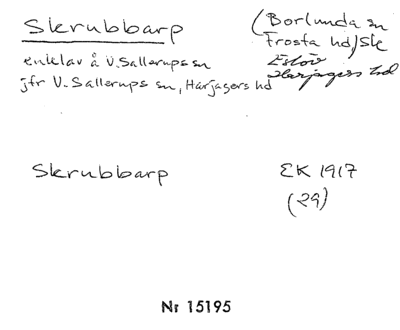 Skrubbarp
(Borlunda sn
Frosta hd/Sk
enklav å V. Sallerups sn
Eslöv
jfr V. Sallerups sn, Harjagers hd
Harjagers hd
Skrubbarp
EK 1917
(29)
Nr 15195